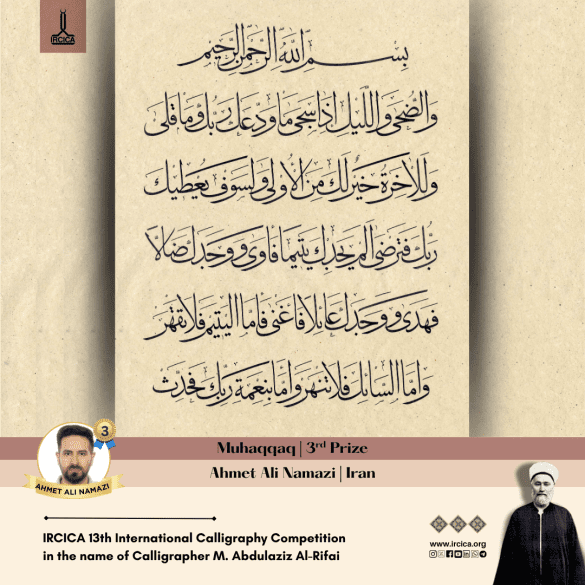 IRCICA
بسم الله الرحمن الرحيم
والضحى والليل اذا سجى ما ودعك ربك وما قلى
وللاخرة خير لك من الاولى ولسوف يعطيك
ربك فترضى الم يجدك يتيما فاوى ووجدك ضالا
فهدى ووجدك عايلا فاغنى فاما اليتيم فلا تقهر
واما السائل فلا تنهر واما بنعمة ربك فحدث
3
AHMET ALI NAMAZI
Muhaqqaq | 3rd Prize
Ahmet Ali Namazi | Iran
IRCICA 13th International Calligraphy Competition
in the name of Calligrapher M. Abdulaziz Al-Rifai
www.ircica.org